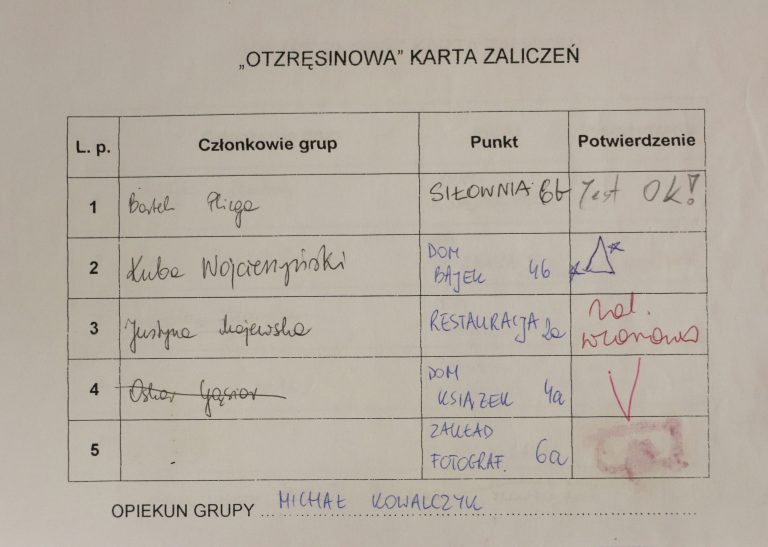 „OTZRĘSINOWA” KARTA ZALICZEŃ
L. p. Członkowie grup Punkt Potwierdzenie
1 Bartek Plicga SIŁOWNIA 6b Jest OK!
2 Kuba DOM
BAJEK 4b
3 Justyna Majewska RESTAURACJA 2a zal.
4 Oskar Gąsior DOM
KSIĄŻEK 4a
5 ZAKŁAD
FOTOGRAF. 6a
OPIEKUN GRUPY MICHAŁ KOWALCZYK